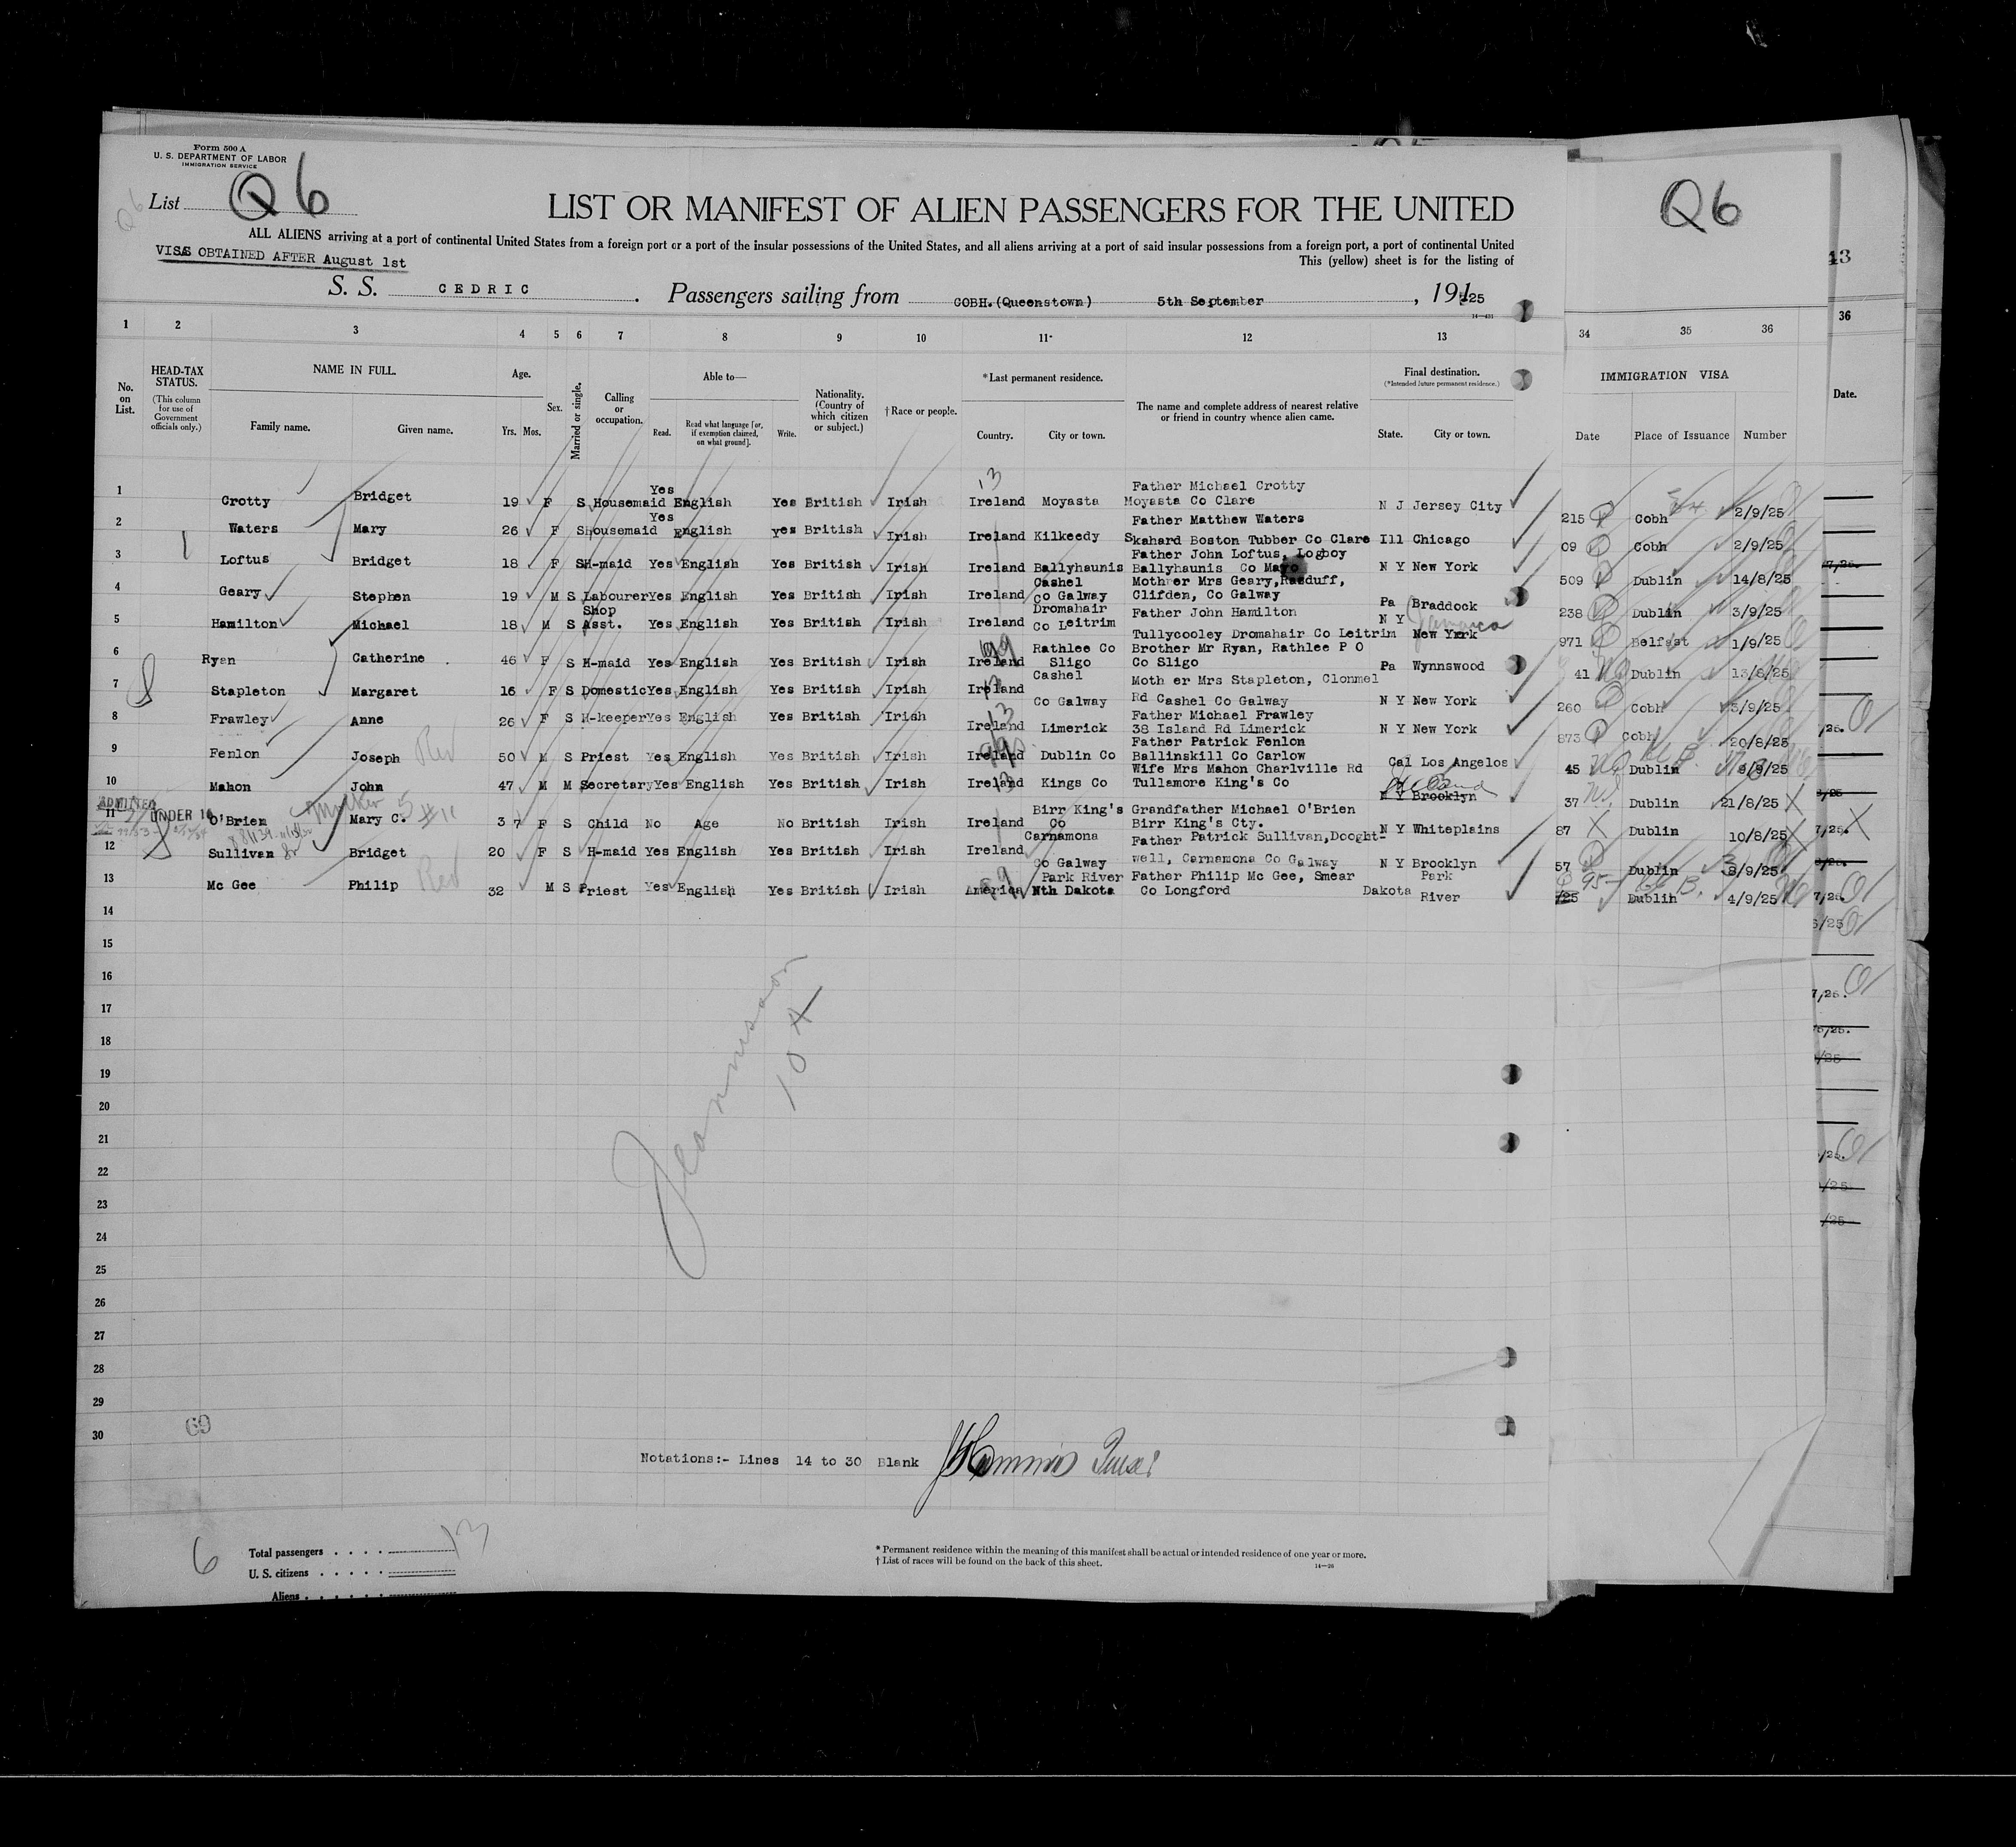 Form 500 A
U. S. DEPARTMENT OF LABOR
IMMIGRATION SERVICE
List Q6
Q6
LIST OR MANIFEST OF ALIEN PASSENGERS FOR THE UNITED
ALL ALIENS arriving at a port of continental United States from a foreign port or a port of the insular possessions of the United States, and all aliens arriving at a port of said insular possessions from a foreign port, a port of continental United
VISAS OBTAINED AFTER August 1st
This (yellow) sheet is for the listing of
S. S. CEDRIC. Passengers sailing from COBH.(Queenstown) 5th September, 1925
Q6
43
1 2 3 4 5 6 7 8 9 10 11* 12 13 34 35 36 36
No. on List.
HEAD-TAX STATUS.
(This column for use of Government officials only.)
NAME IN FULL.
Family name. Given name.
Age.
Yrs. Mos.
Sex.
Married or single.
Calling or occupation.
Able to—
Read. Read what language [or, if exemption claimed, on what ground]. Write.
Nationality. (Country of which citizen or subject.)
† Race or people.
*Last permanent residence.
Country. City or town.
The name and complete address of nearest relative or friend in country whence alien came.
Final destination.
(*Intended future permanent residence.)
State. City or town.
IMMIGRATION VISA
Date Place of Issuance Number
Date.
1 Crotty Bridget 19 F S Housemaid Yes English Yes British Irish Ireland Moyasta Father Michael Crotty Moyasta Co Clare N J Jersey City 215 Cobh 2/9/25
2 Waters Mary 26 F S housemaid Yes English yes British Irish Ireland Kilkeedy Father Matthew Waters Skahard Boston Tubber Co Clare Ill Chicago 09 Cobh 2/9/25
3 Loftus Bridget 18 F S H-maid Yes English Yes British Irish Ireland Ballyhaunis Father John Loftus, Logboy Ballyhaunis Co Mayo N Y New York 509 Dublin 14/8/25
4 Geary Stephen 19 M S Labourer Yes English Yes British Irish Ireland Cashel Co Galway Mother Mrs Geary, Clifden, Co Galway Pa Braddock 238 Dublin 3/9/25
5 Hamilton Michael 18 M S Shop Asst. Yes English Yes British Irish Ireland Dromahair Co Leitrim Father John Hamilton Tullycooley Dromahair Co Leitrim N Y New York Jamaica 971 Belfast 1/9/25
6 Ryan Catherine 46 F S H-maid Yes English Yes British Irish Ireland Rathlee Co Sligo Brother Mr Ryan, Rathlee P O Co Sligo Pa Wynnswood 41 Dublin 13/8/25
7 Stapleton Margaret 16 F S Domestic Yes English Yes British Irish Ireland Cashel Co Galway Moth er Mrs Stapleton, Clonmel Rd Cashel Co Galway N Y New York 260 Cobh 3/9/25
8 Frawley Anne 26 F S H-keeper Yes English Yes British Irish Ireland Limerick Father Michael Frawley 38 Island Rd Limerick N Y New York 873 Cobh 20/8/25
9 Fenlon Joseph Rev 50 M S Priest Yes English Yes British Irish Ireland Dublin Co Father Patrick Fenlon Ballinskill Co Carlow Cal Los Angelos 45 Dublin 8/8/25
10 Mahon John 47 M M Secretary Yes English Yes British Irish Ireland Kings Co Wife Mrs Mahon Charlville Rd Tullamore King's Co N Y Brooklyn 37 Dublin 21/8/25
ADMITTED
11 UNDER 16 O'Brien Mary C. 3 7 F S Child No Age No British Irish Ireland Birr King's Co Grandfather Michael O'Brien Birr King's Cty. N Y Whiteplains 87 Dublin 10/8/25
12 Sullivan Bridget 20 F S H-maid Yes English Yes British Irish Ireland Carnamona Co Galway Father Patrick Sullivan, Dooghtwell, Carnamona Co Galway N Y Brooklyn 57 Dublin 3/9/25
13 Mc Gee Philip Rev 32 M S Priest Yes English Yes British Irish America Park River Nth Dakota Father Philip Mc Gee, Smear Co Longford Dakota Park River 95 Dublin 4/9/25
14
15
16
17
18
19
20
21
22
23
24
25
26
27
28
29
30
104
69
Notations:- Lines 14 to 30 Blank
6
Total passengers 13
U. S. citizens
Aliens
* Permanent residence within the meaning of this manifest shall be actual or intended residence of one year or more.
† List of races will be found on the back of this sheet.
14—26